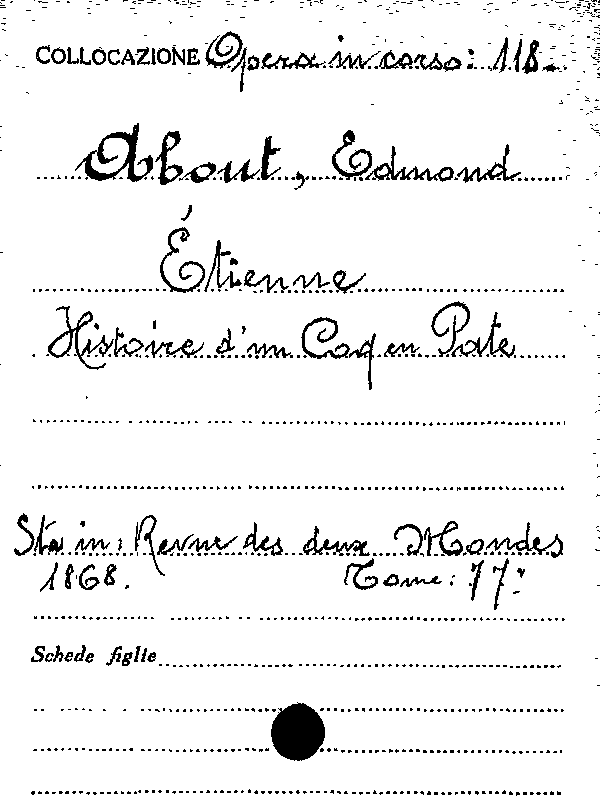 COLLOCAZIONE Opera in corso: 118.
About, Edmond
Étienne
Histoire d'un Coq en Pate
Sta in: Revue des deux Mondes
1868. Tome: 77:
Schede figlie